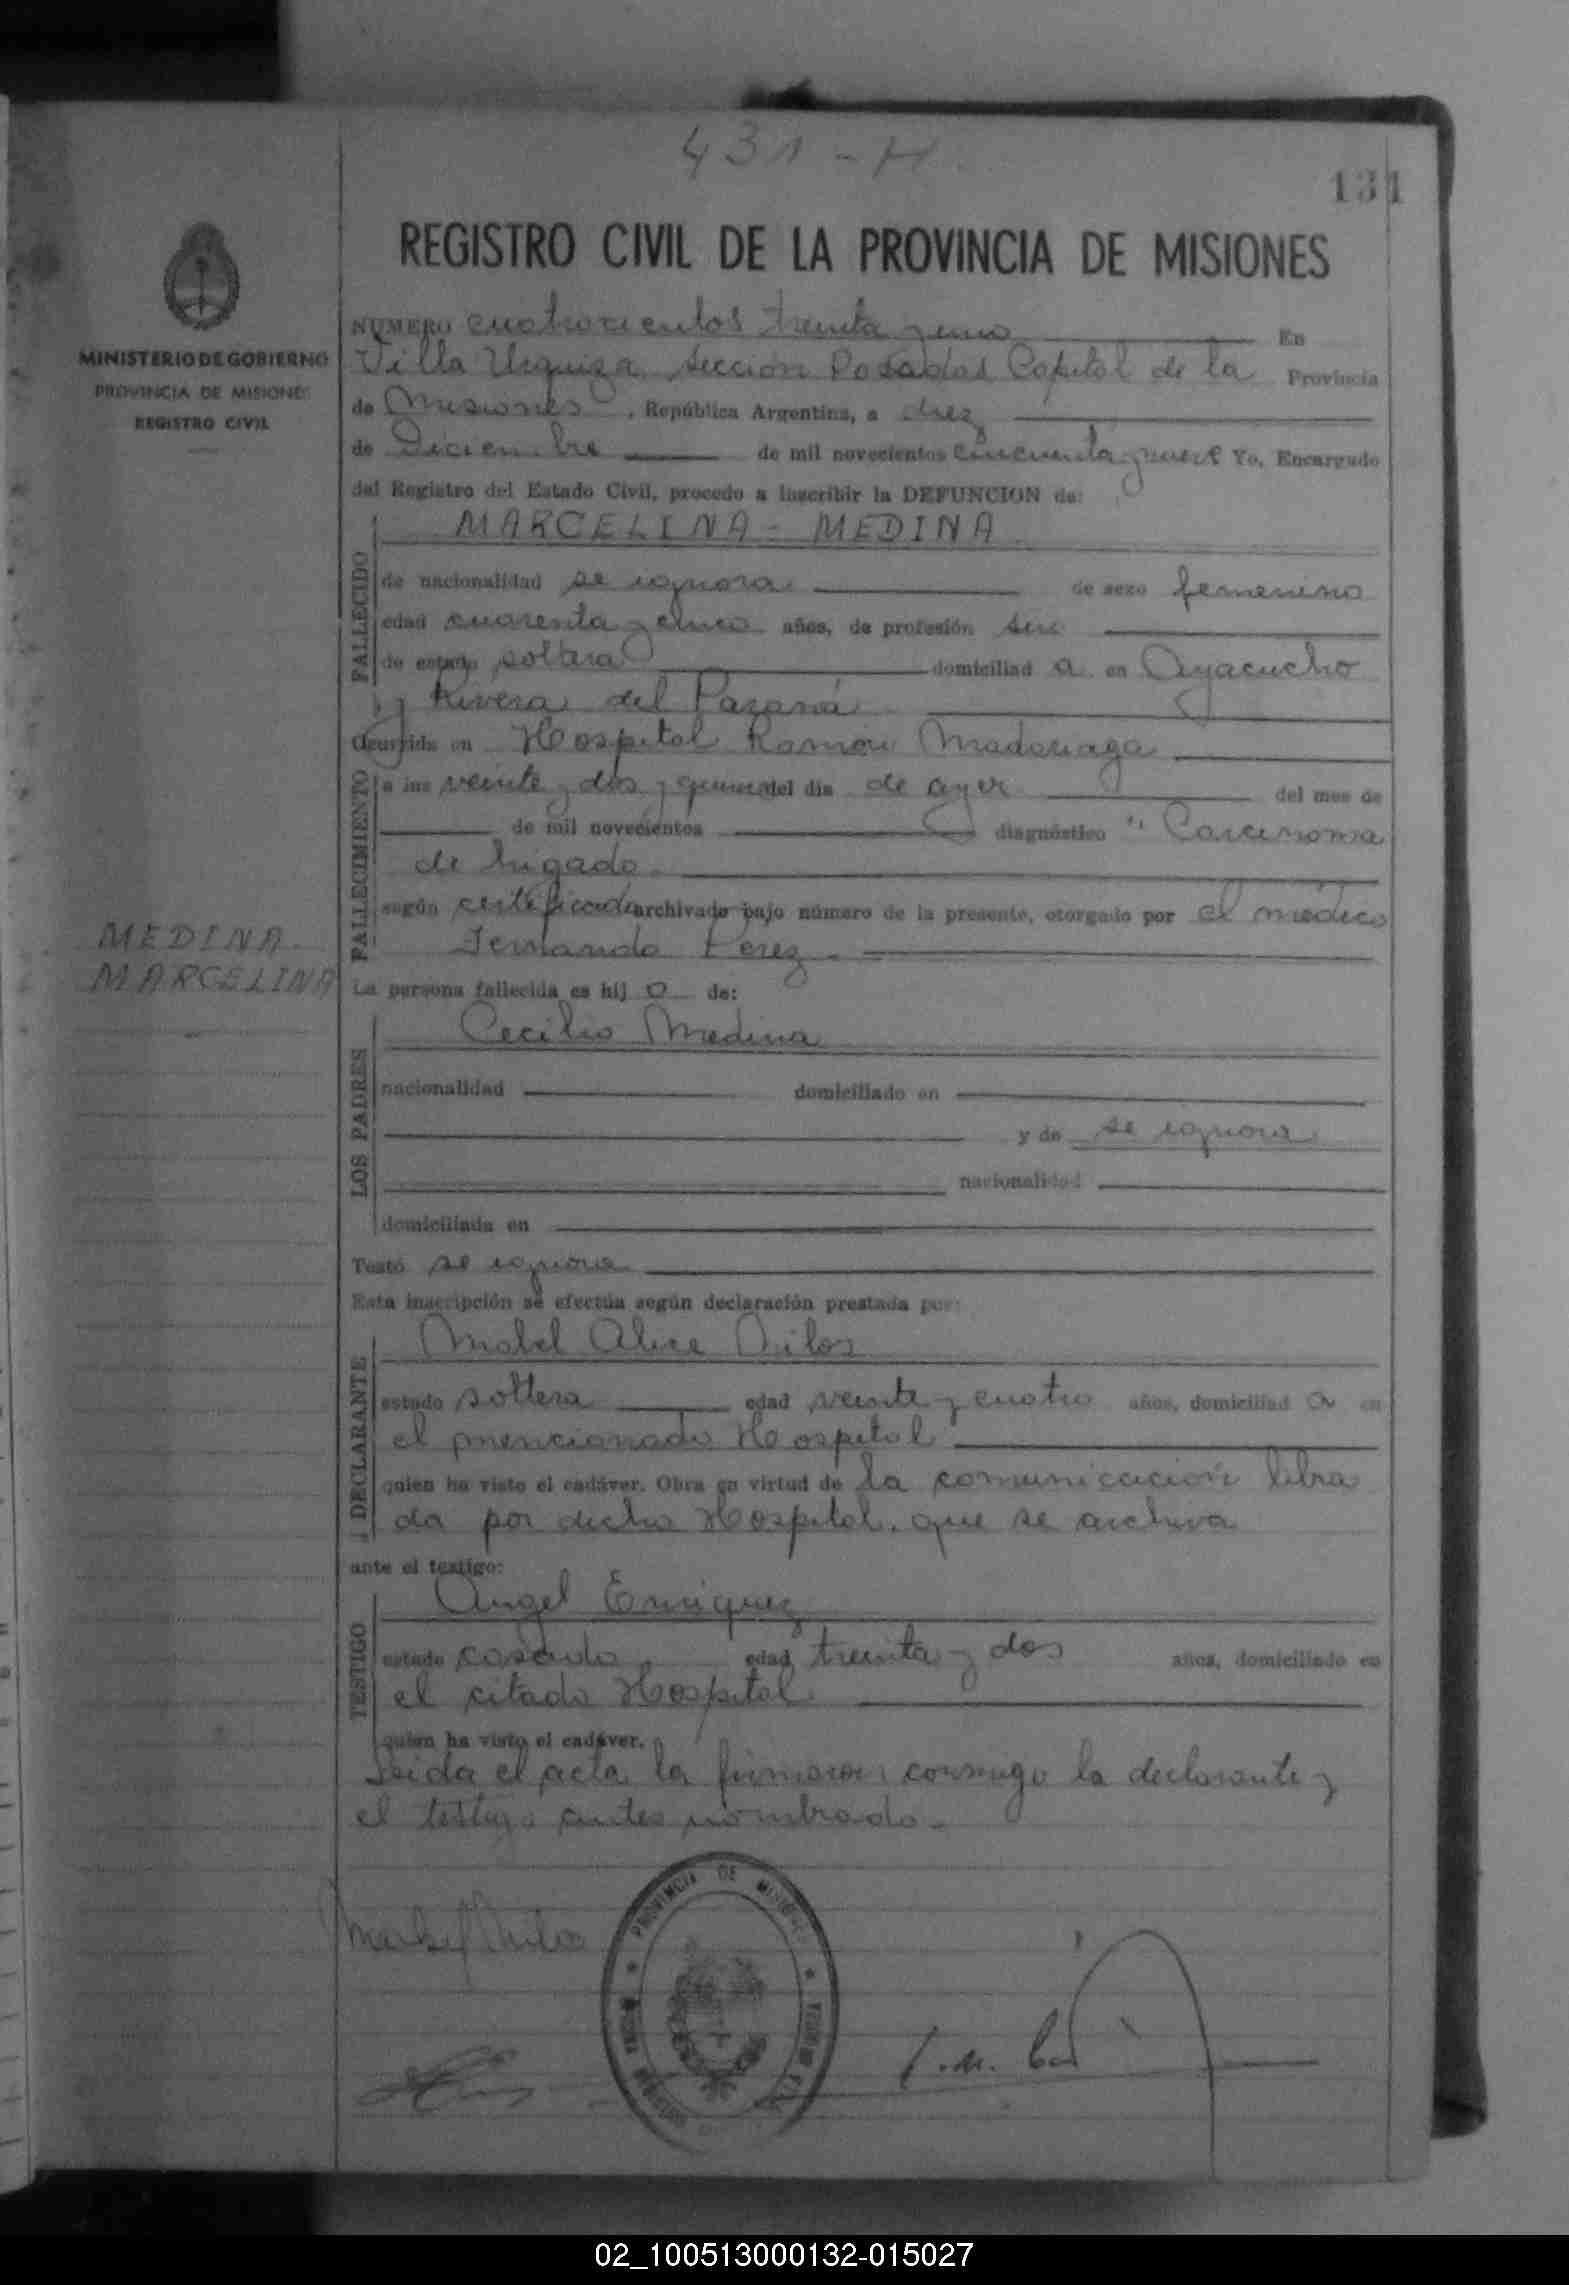 431 - H.
131
REGISTRO CIVIL DE LA PROVINCIA DE MISIONES
MINISTERIO DE GOBIERNO
PROVINCIA DE MISIONES
REGISTRO CIVIL
NUMERO cuatrocientos treinta y uno En
Villa Urquiza, sección Posadas Capital de la Provincia
de Misiones, República Argentina, a diez
de Diciembre de mil novecientos cincuenta y nueve Yo, Encargado
del Registro del Estado Civil, procedo a inscribir la DEFUNCION de:
MARCELINA - MEDINA
FALLECIDO
de nacionalidad se ignora de sexo femenino
edad cuarenta y cinco años, de profesión sin
de estado soltera domiciliad a en Ayacucho
y Rivera del Paraná
Ocurrida en Hospital Ramón Madariaga
FALLECIMIENTO
a las veinte y dos y quince del día de ayer del mes de
de mil novecientos diagnóstico " Carcinoma
de higado.
según certificado archivado bajo número de la presente, otorgado por el médico
Fernando Perez.
MEDINA
MARCELINA
La persona fallecida es hij o de:
LOS PADRES
Cecilio Medina
nacionalidad domiciliado en
y de se ignora
nacionalidad
domiciliada en
Testó se ignora
Esta inscripción se efectúa según declaración prestada por:
DECLARANTE
Mabel Alice
estado soltera edad veinte y cuatro años, domiciliad a en
el mencionado Hospital
quien ha visto el cadáver. Obra en virtud de la comunicación libra
da por dicho Hospital, que se archiva
ante el testigo:
TESTIGO
Angel Enriquez
estado casado edad treinta y dos años, domiciliado en
el citado Hospital
quien ha visto el cadáver.
Leida el acta la firmaron conmigo la declarante y
el testigo antes nombrado.-
PROVINCIA DE MISIONES
02_100513000132-015027